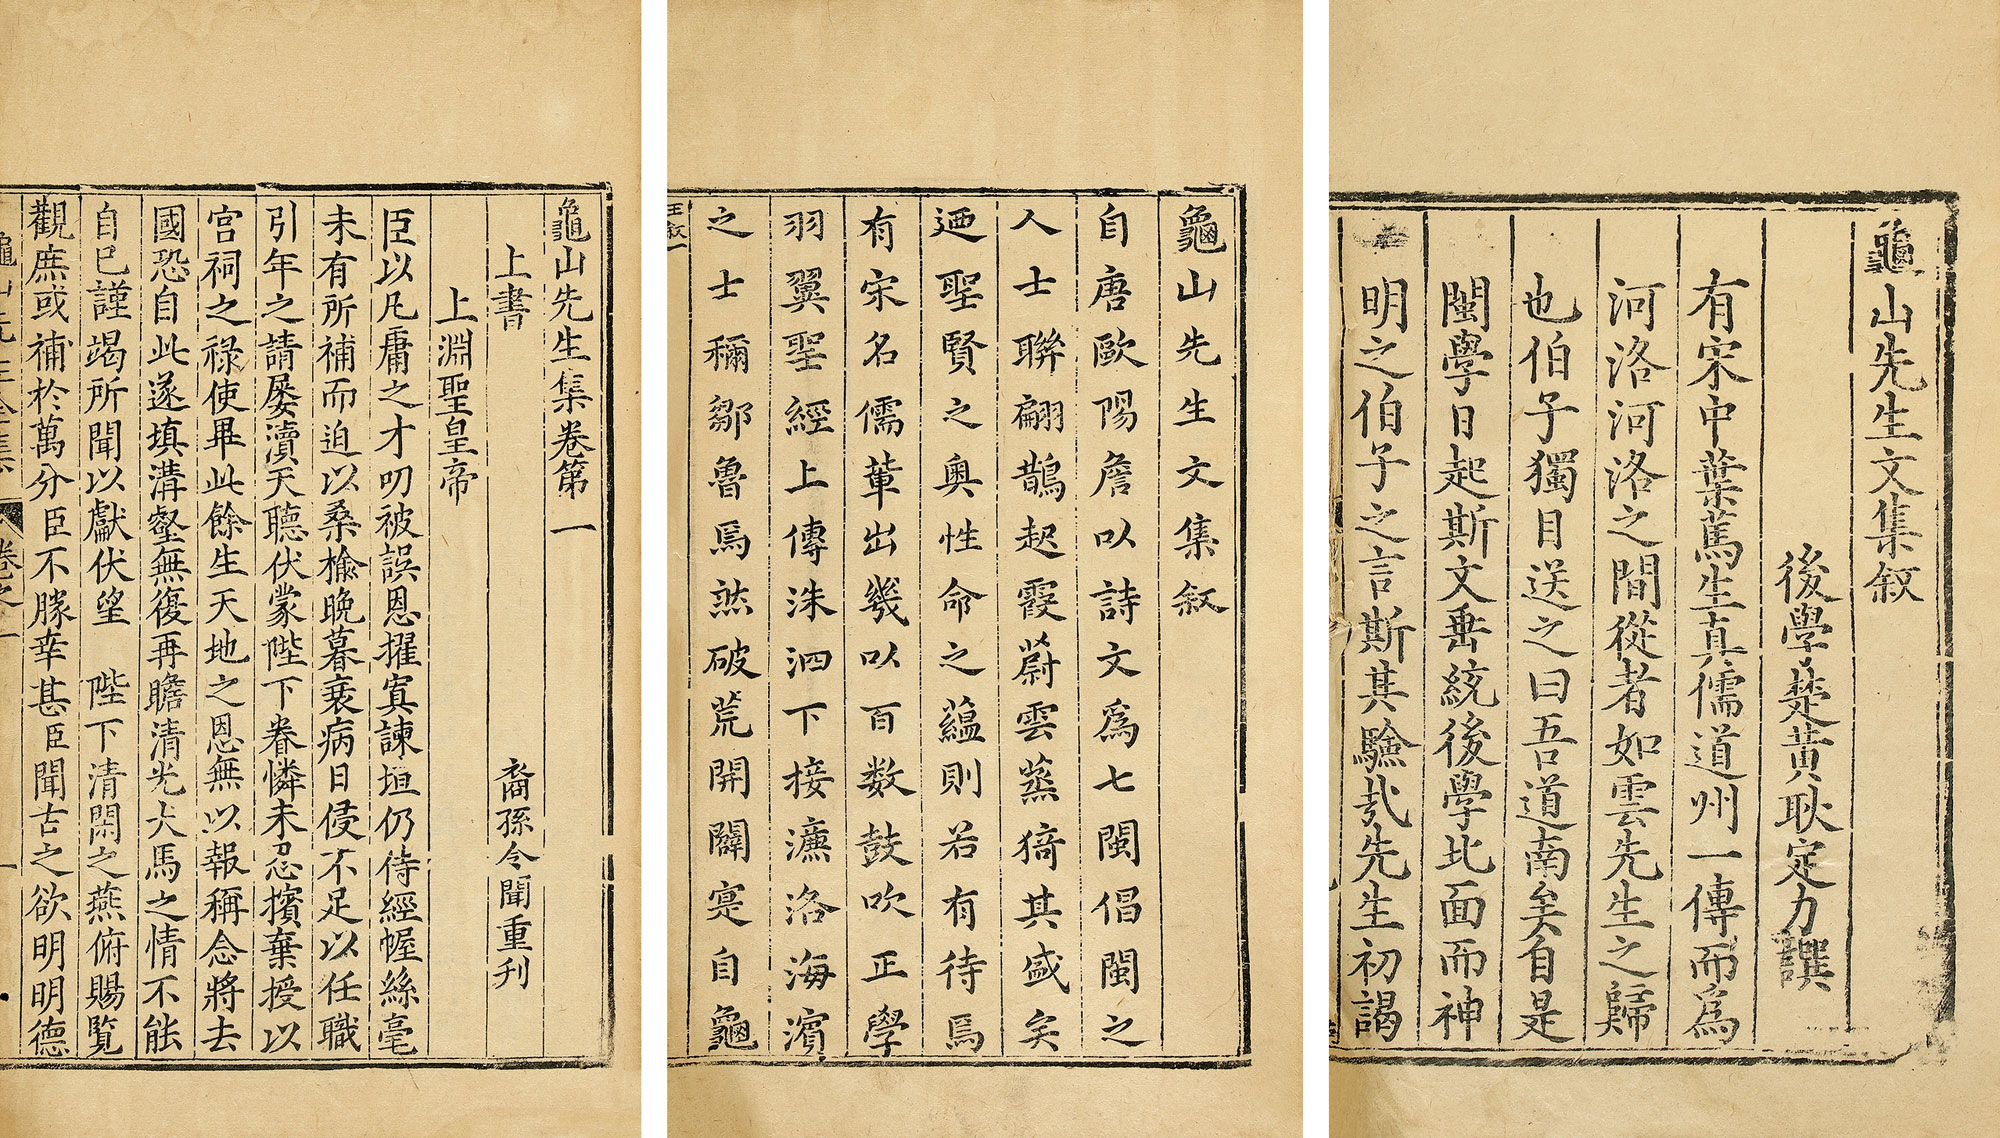 龜山先生文集叙
後學楚黄耿定力譔
有宋中葉篤生真儒道州一傳而爲
河洛河洛之間從者如雲先生之歸
也伯子獨目送之曰吾道南矣自是
閩學日起斯文垂統後學北面而神
明之伯子之言斯其驗哉先生初謁
龜山先生文集叙
自唐歐陽詹以詩文爲七閩倡閩之
人士聯翩鵲起霞蔚雲蒸猗其盛矣
迺聖賢之奥性命之蘊則若有待焉
有宋名儒輩出幾以百数鼓吹正學
羽翼聖經上傳洙泗下接濂洛海濱
之士稱鄒魯焉然破荒開闢寔自龜
王叙一
龜山先生集卷第一
上書
裔孫令聞重刊
上淵聖皇帝
臣以凡庸之才叨被誤恩擢寘諫垣仍侍經幄絲毫
未有所補而迫以桑榆晚暮衰病日侵不足以任職
引年之請屡瀆天聽伏蒙陛下眷憐未忍擯棄授以
宫祠之禄使畢此餘生天地之恩無以報稱念將去
國恐自此遂填溝壑無復再瞻清光犬馬之情不能
自已謹竭所聞以獻伏望 陛下清閑之燕俯賜覧
觀庶或補於萬分臣不勝幸甚臣聞古之欲明明德
卷之一